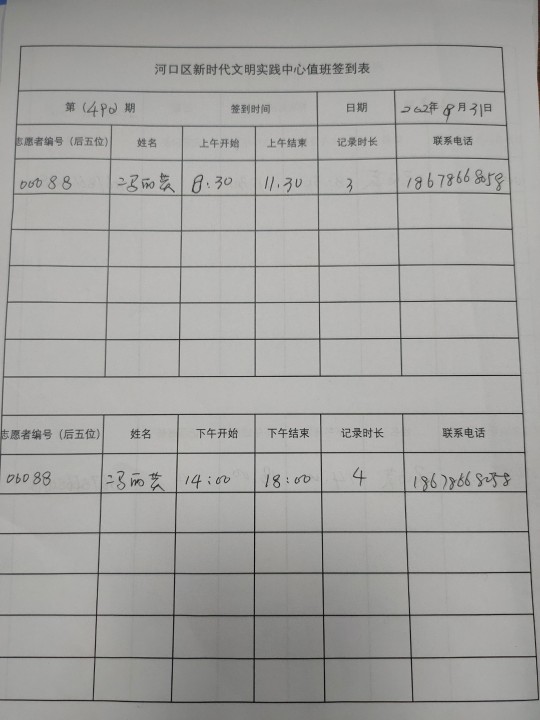 河口区新时代文明实践中心值班签到表
第（490）期 签到时间 日期 2022年8月31日
志愿者编号（后五位） 姓名 上午开始 上午结束 记录时长 联系电话
00088 冯丽英 8:30 11:30 3 18678668058
志愿者编号（后五位） 姓名 下午开始 下午结束 记录时长 联系电话
00088 冯丽英 14:00 18:00 4 18678668058